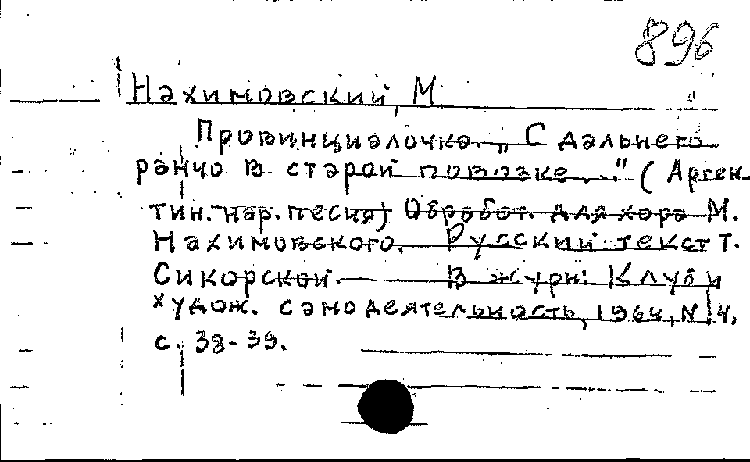 896
Нахимовский, М.
Провинциалочка. „С дальнего
ранчо в старой повозке..." (Арген-
тин. нар. песня) Обработ. для хора М.
Нахимовского. Русский текст Т.
Сикорской. В журн: Клуб и
худож. самодеятельность, 1964, N 4,
с. 38-39.